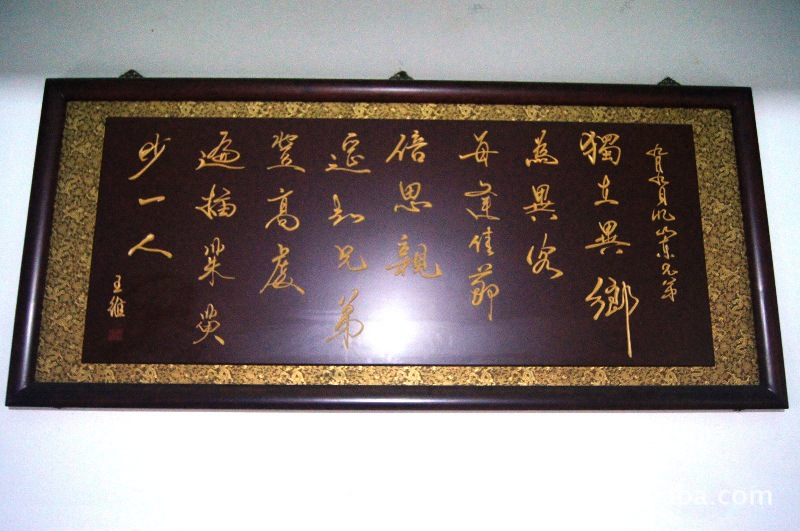 九月九日忆山東兄弟
獨在異鄉
為異客
每逢佳節
倍思親
遥知兄弟
登高處
遍插茱萸
少一人
王維
ba.com